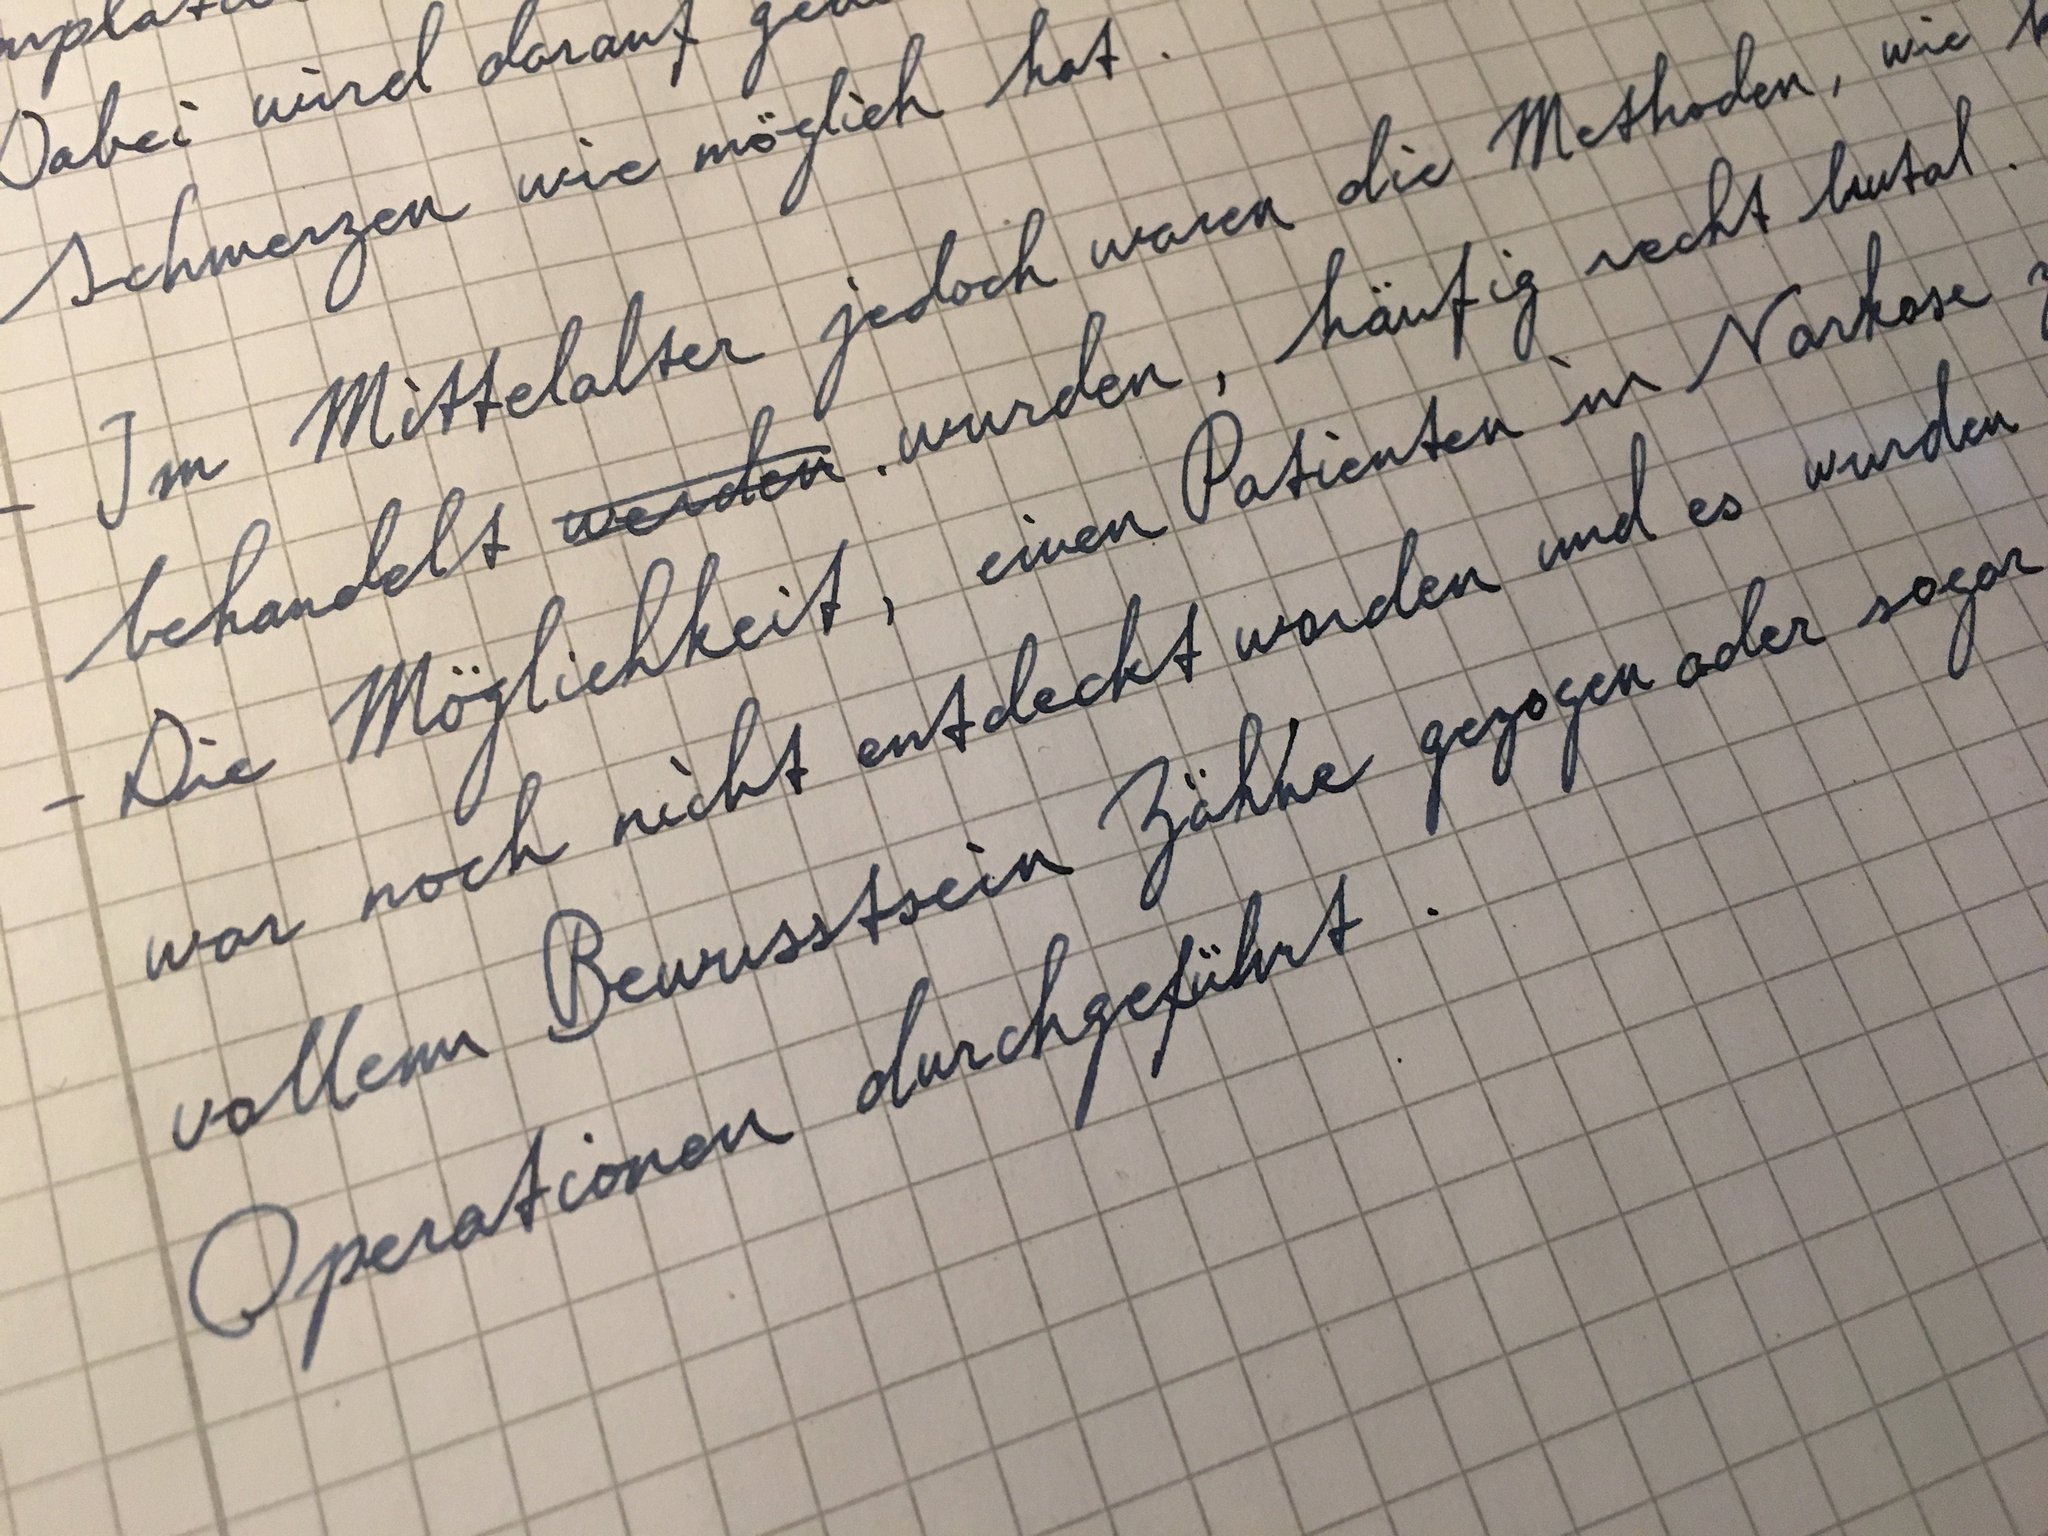 Dabei wird darauf
Schmerzen wie möglich hat.
- Im Mittelalter jedoch waren die Methoden, wie
behandelt ~~werden~~ wurden, häufig recht brutal.
- Die Möglichkeit, einen Patienten in Narkose
war noch nicht entdeckt worden und es wurden
vollem Bewusstsein Zähne gezogen oder sogar
Operationen durchgeführt.